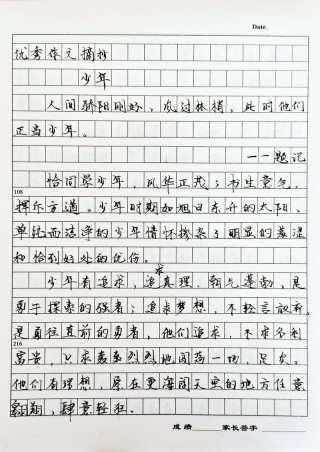 Date.
优秀作文摘抄
少年
人间骄阳刚好，风过林梢，此时他们
正当少年。
——题记
恰同学少年，风华正茂；书生意气，
挥斥方遒。少年时期如旭日东升的太阳，
108
单纯而洁净的少年情怀掺杂了明显的羞涩
和恰到好处的忧伤。
少年有追求，追求真理、朝气蓬勃，是
勇于探索的强者；追求梦想，不轻言放弃，
是勇往直前的勇者，他们追求，不求名利
216
富贵，只求轰轰烈烈地闯荡一场，足矣。
他们有理想，愿在更海阔天空的地方任意
翱翔，肆意轻狂。
成绩 家长签字